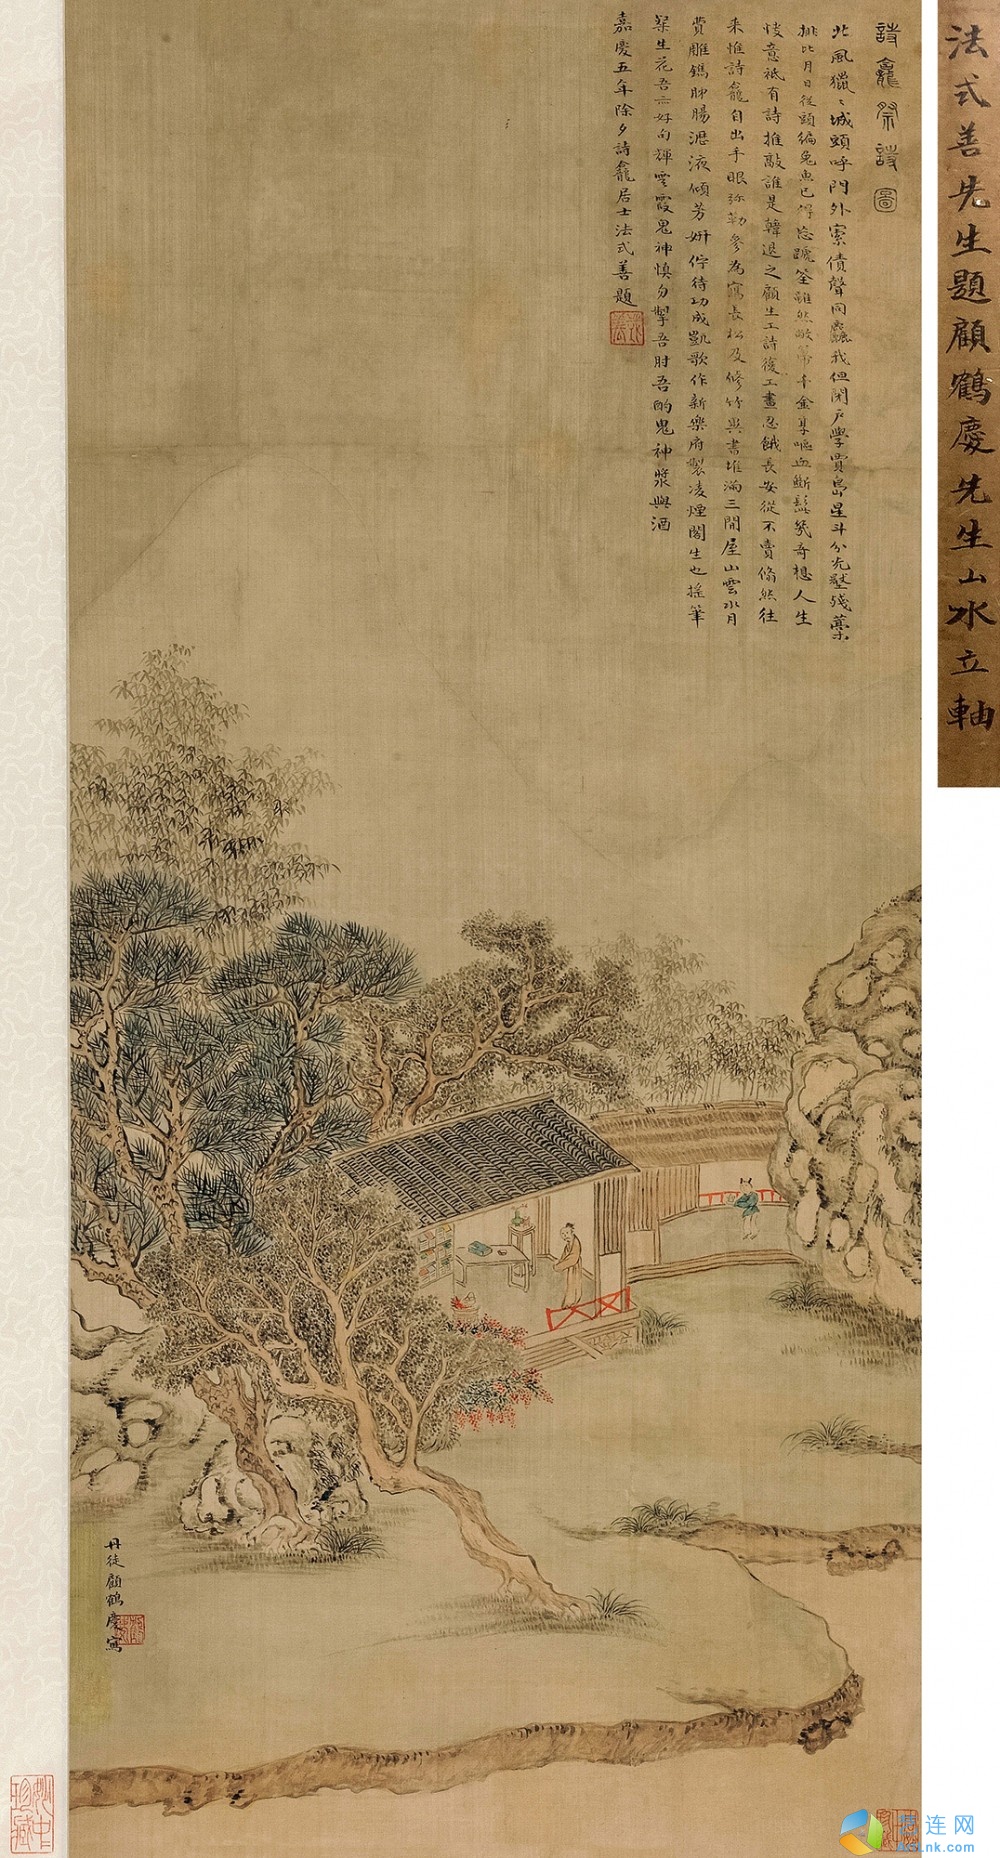 法式善先生題顧鶴慶先生山水立軸
詩龕祭詩圖
北風獵獵城頭呼門外索債聲同麤我但閉戶學賈島星斗分光壓殘藁
排比月日從頭編兔魚已得忘蹏筌雖然敝帚千金享嘔血斷髭幾奇想人生
快意祇有詩推敲誰是韓退之顧生工詩復工畫忍餓長安從不賣翛然往
來惟詩龕自出手眼彌勒參為寫長松及修竹與書堆滿三間屋山雲水月
費雕鎸肺腸瀝液傾芳妍佇待功成凱歌作新樂府製凌煙閣生也搖筆
筆生花吾亦好句輝雲霞鬼神慎勿掣吾肘吾酌鬼神漿與酒
嘉慶五年除夕詩龕居士法式善題
丹徒顧鶴慶寫
珍藏
连网
nk.com